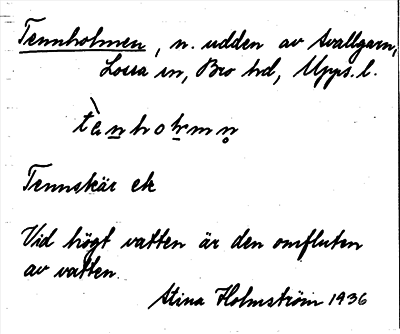 Tennholmen, n. udden av Svallgarn,
Lossa sn, Bro hd, Upps. l.
tὲn̲hoḻmn̥
Tennskär ek
Vid högt vatten är den omfluten
av vatten.
Stina Holmström 1936